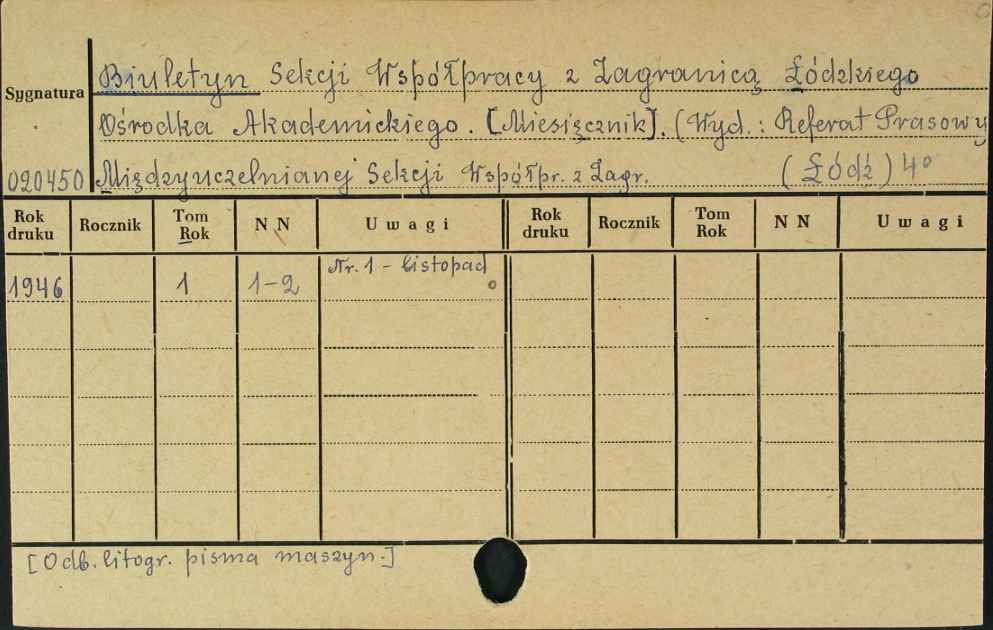 Biuletyn Sekcji Współpracy z Zagranicą Łódzkiego
Sygnatura
Ośrodka Akademickiego. [Miesięcznik]. (Wyd.: Referat Prasowy
020450 Międzyuczelnianej Sekcji Współpr. z Zagr. (Łódź) 4°
Rok druku Rocznik Tom Rok NN Uwagi Rok druku Rocznik Tom Rok NN Uwagi
1946 1 1-2 Nr. 1 - listopad
[Odb. litogr. pisma maszyn.]